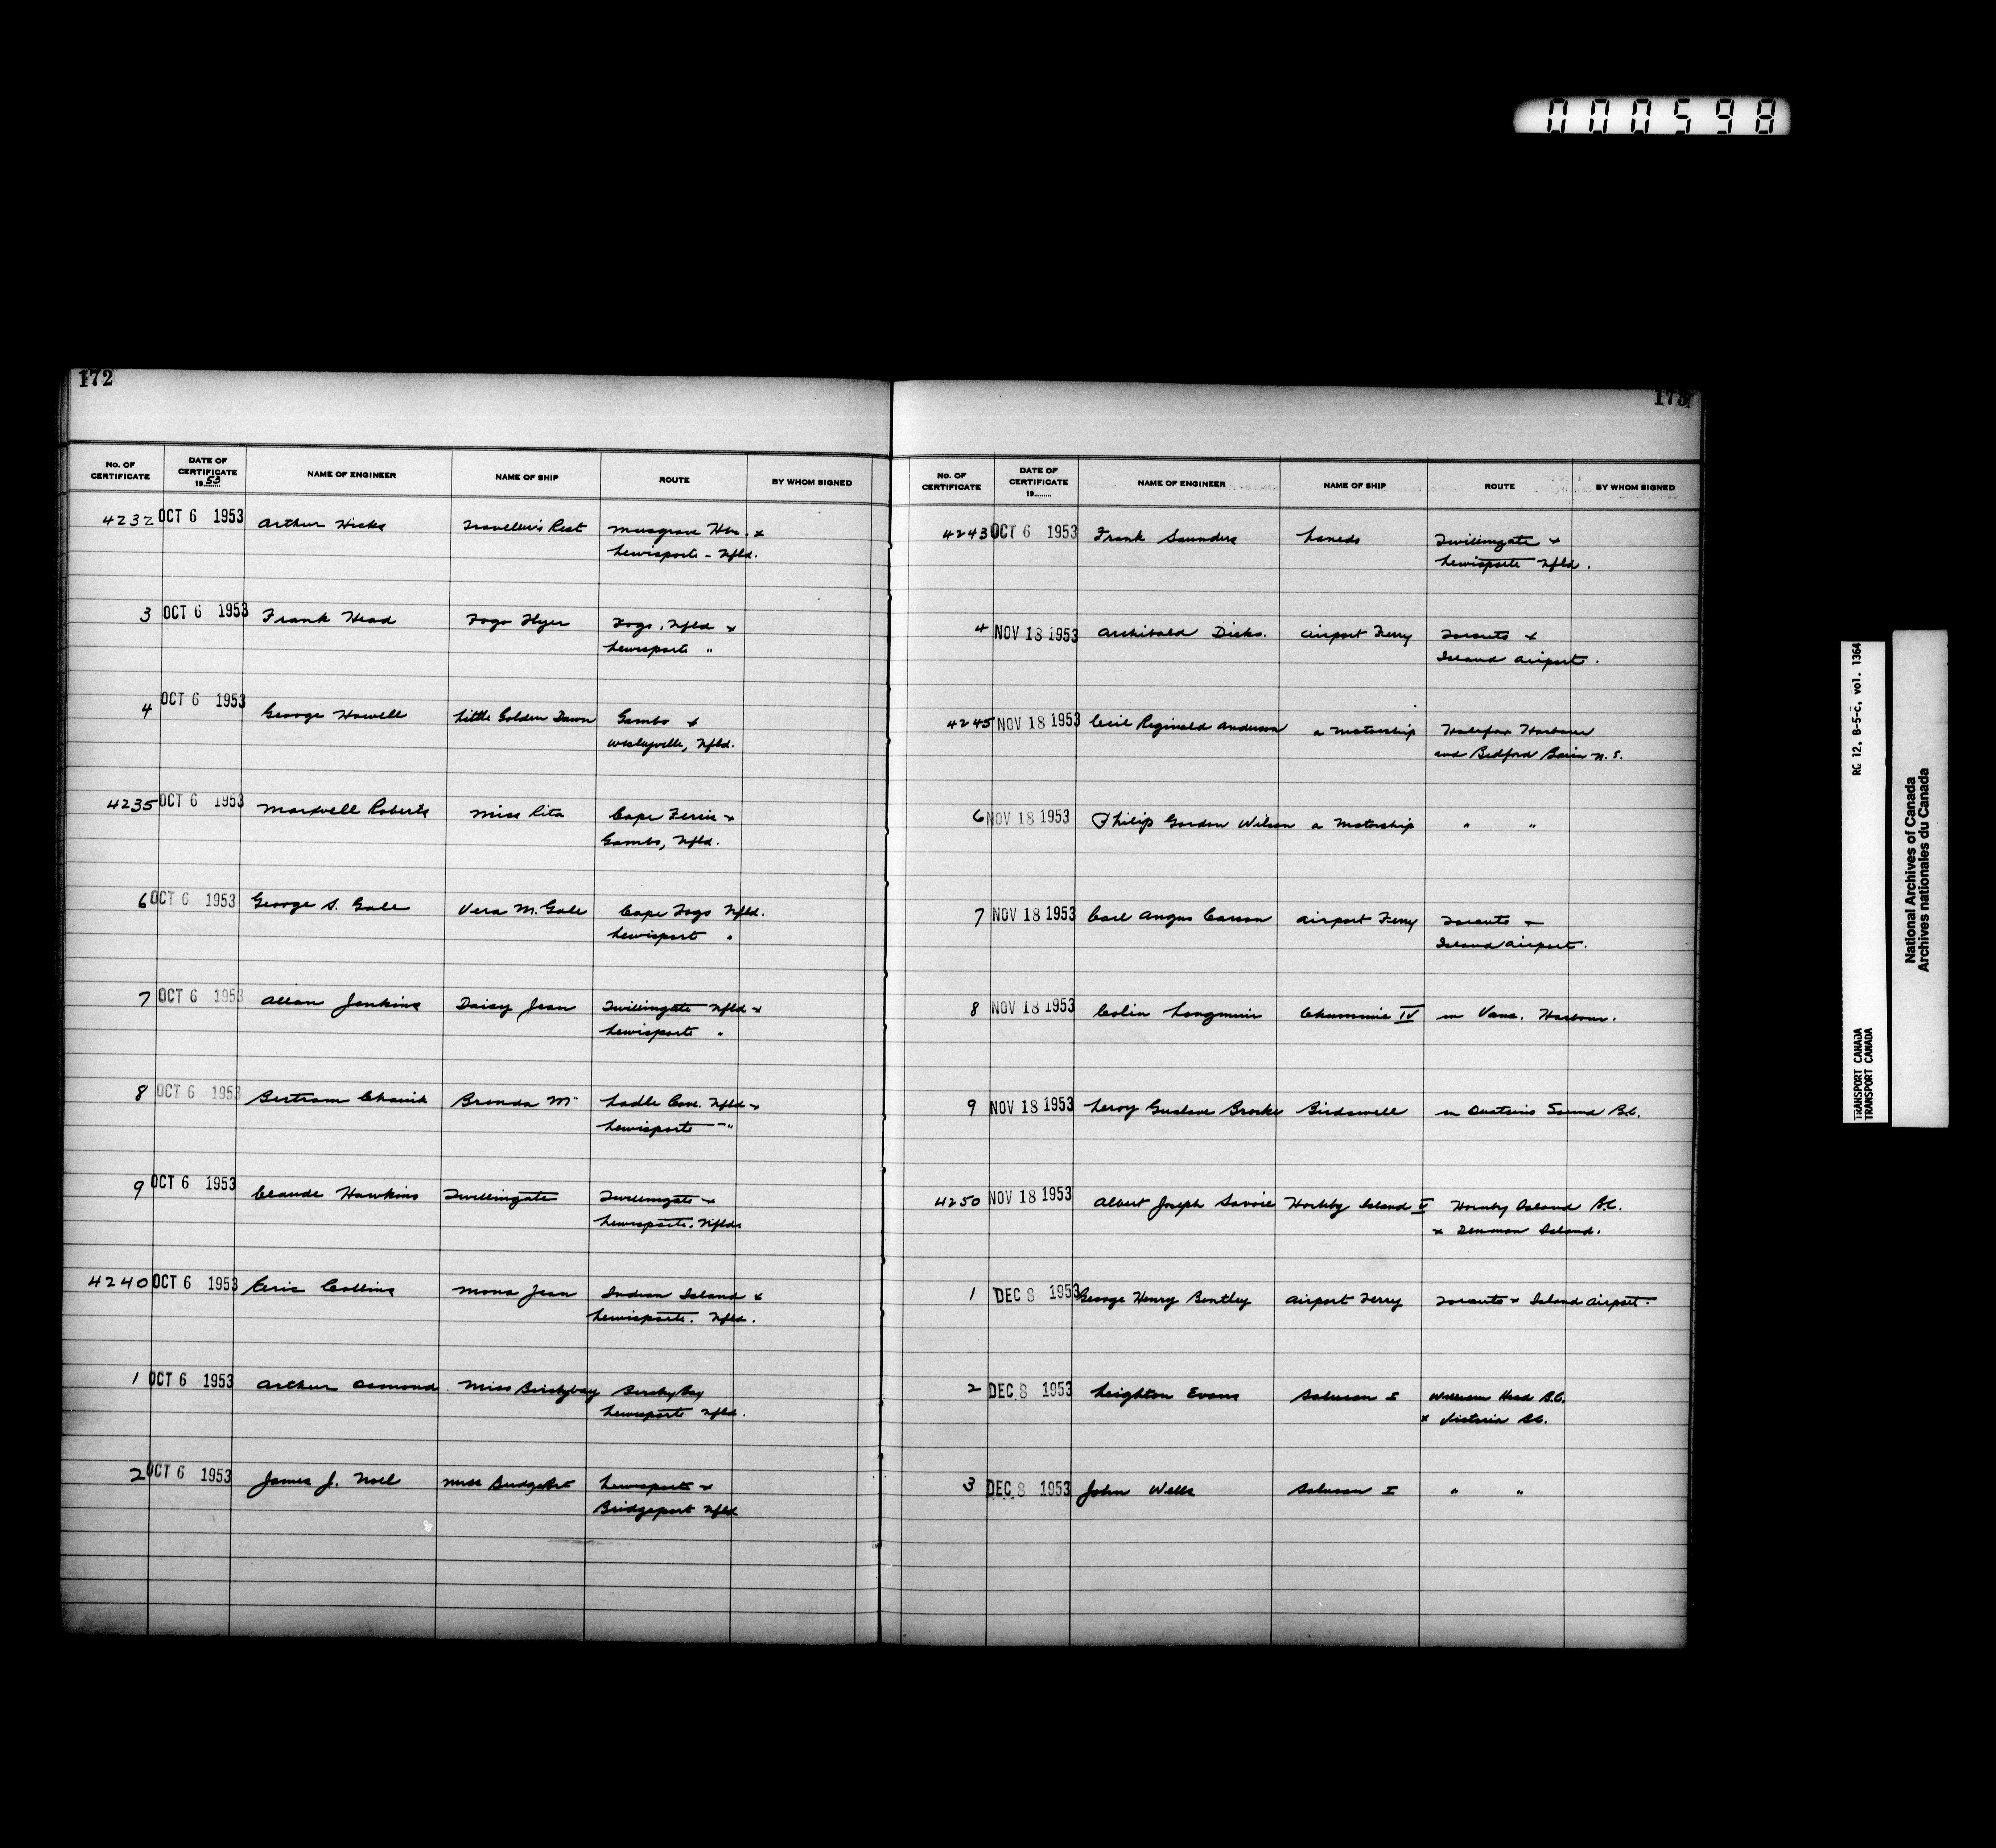 000598
172
No. OF CERTIFICATE DATE OF CERTIFICATE 1953 NAME OF ENGINEER NAME OF SHIP ROUTE BY WHOM SIGNED
4232 OCT 6 1953 Arthur Hicks Traveller's Rest Musgrave Hbr. &
Lewisporte - Nfld.
3 OCT 6 1953 Frank Head Fogo Flyer Fogo, Nfld &
Lewisporte "
4 OCT 6 1953 George Howell Little Golden Dawn Gambo &
Wesleyville, Nfld.
4235 OCT 6 1953 Maxwell Roberts Miss Rita Cape Freels &
Gambo, Nfld.
6 OCT 6 1953 George S. Gale Vera M. Gale Cape Fogo Nfld.
Lewisport "
7 OCT 6 1953 Allan Jenkins Daisy Jean Twillingate Nfld &
Lewisporte "
8 OCT 6 1953 Bertram Brenda M Ladle Cove. Nfld &
Lewisporte - "
9 OCT 6 1953 Claude Hawkins Twillingate Twillingate &
Lewisporte. Nfld.
4240 OCT 6 1953 Eric Collins Mona Jean Indian Island &
Lewisporte. Nfld.
1 OCT 6 1953 Arthur Osmond. Miss Birchybay Birchy Bay
Lewisporte Nfld.
2 OCT 6 1953 James J. Noel Miss Lewisporte &
Bridgeport Nfld
173
No. OF CERTIFICATE DATE OF CERTIFICATE 19........ NAME OF ENGINEER NAME OF SHIP ROUTE BY WHOM SIGNED
4243 OCT 6 1953 Frank Saunders Loneda Twillingate &
Lewisporte Nfld.
4 NOV 18 1953 Archibald Dicks. Airport Ferry Toronto &
Island Airport.
4245 NOV 18 1953 Cecil Reginald Anderson a Motorship Halifax Harbour
and Bedford Basin N.S.
6 NOV 18 1953 Philip Gordon Wilson a Motorship " "
7 NOV 18 1953 Carl Angus Carson Airport Ferry Toronto &
Island Airport.
8 NOV 18 1953 Colin Longmuir Chummie IV in Vanc. Harbour.
9 NOV 18 1953 Leroy Gustave Birdswell in Quatsino Sound B.C.
4250 NOV 18 1953 Albert Joseph Savoie Hornby Island V Hornby Island B.C.
& Denman Island.
1 DEC 8 1953 George Henry Bentley Airport Ferry Toronto & Island Airport.
2 DEC 8 1953 Leighton Evans Salucan I William Head B.C.
& Victoria B.C.
3 DEC 8 1953 John Wells Salucan I " "
RG 12, B-5-c, vol. 1364
TRANSPORT CANADA
TRANSPORT CANADA
National Archives of Canada
Archives nationales du Canada